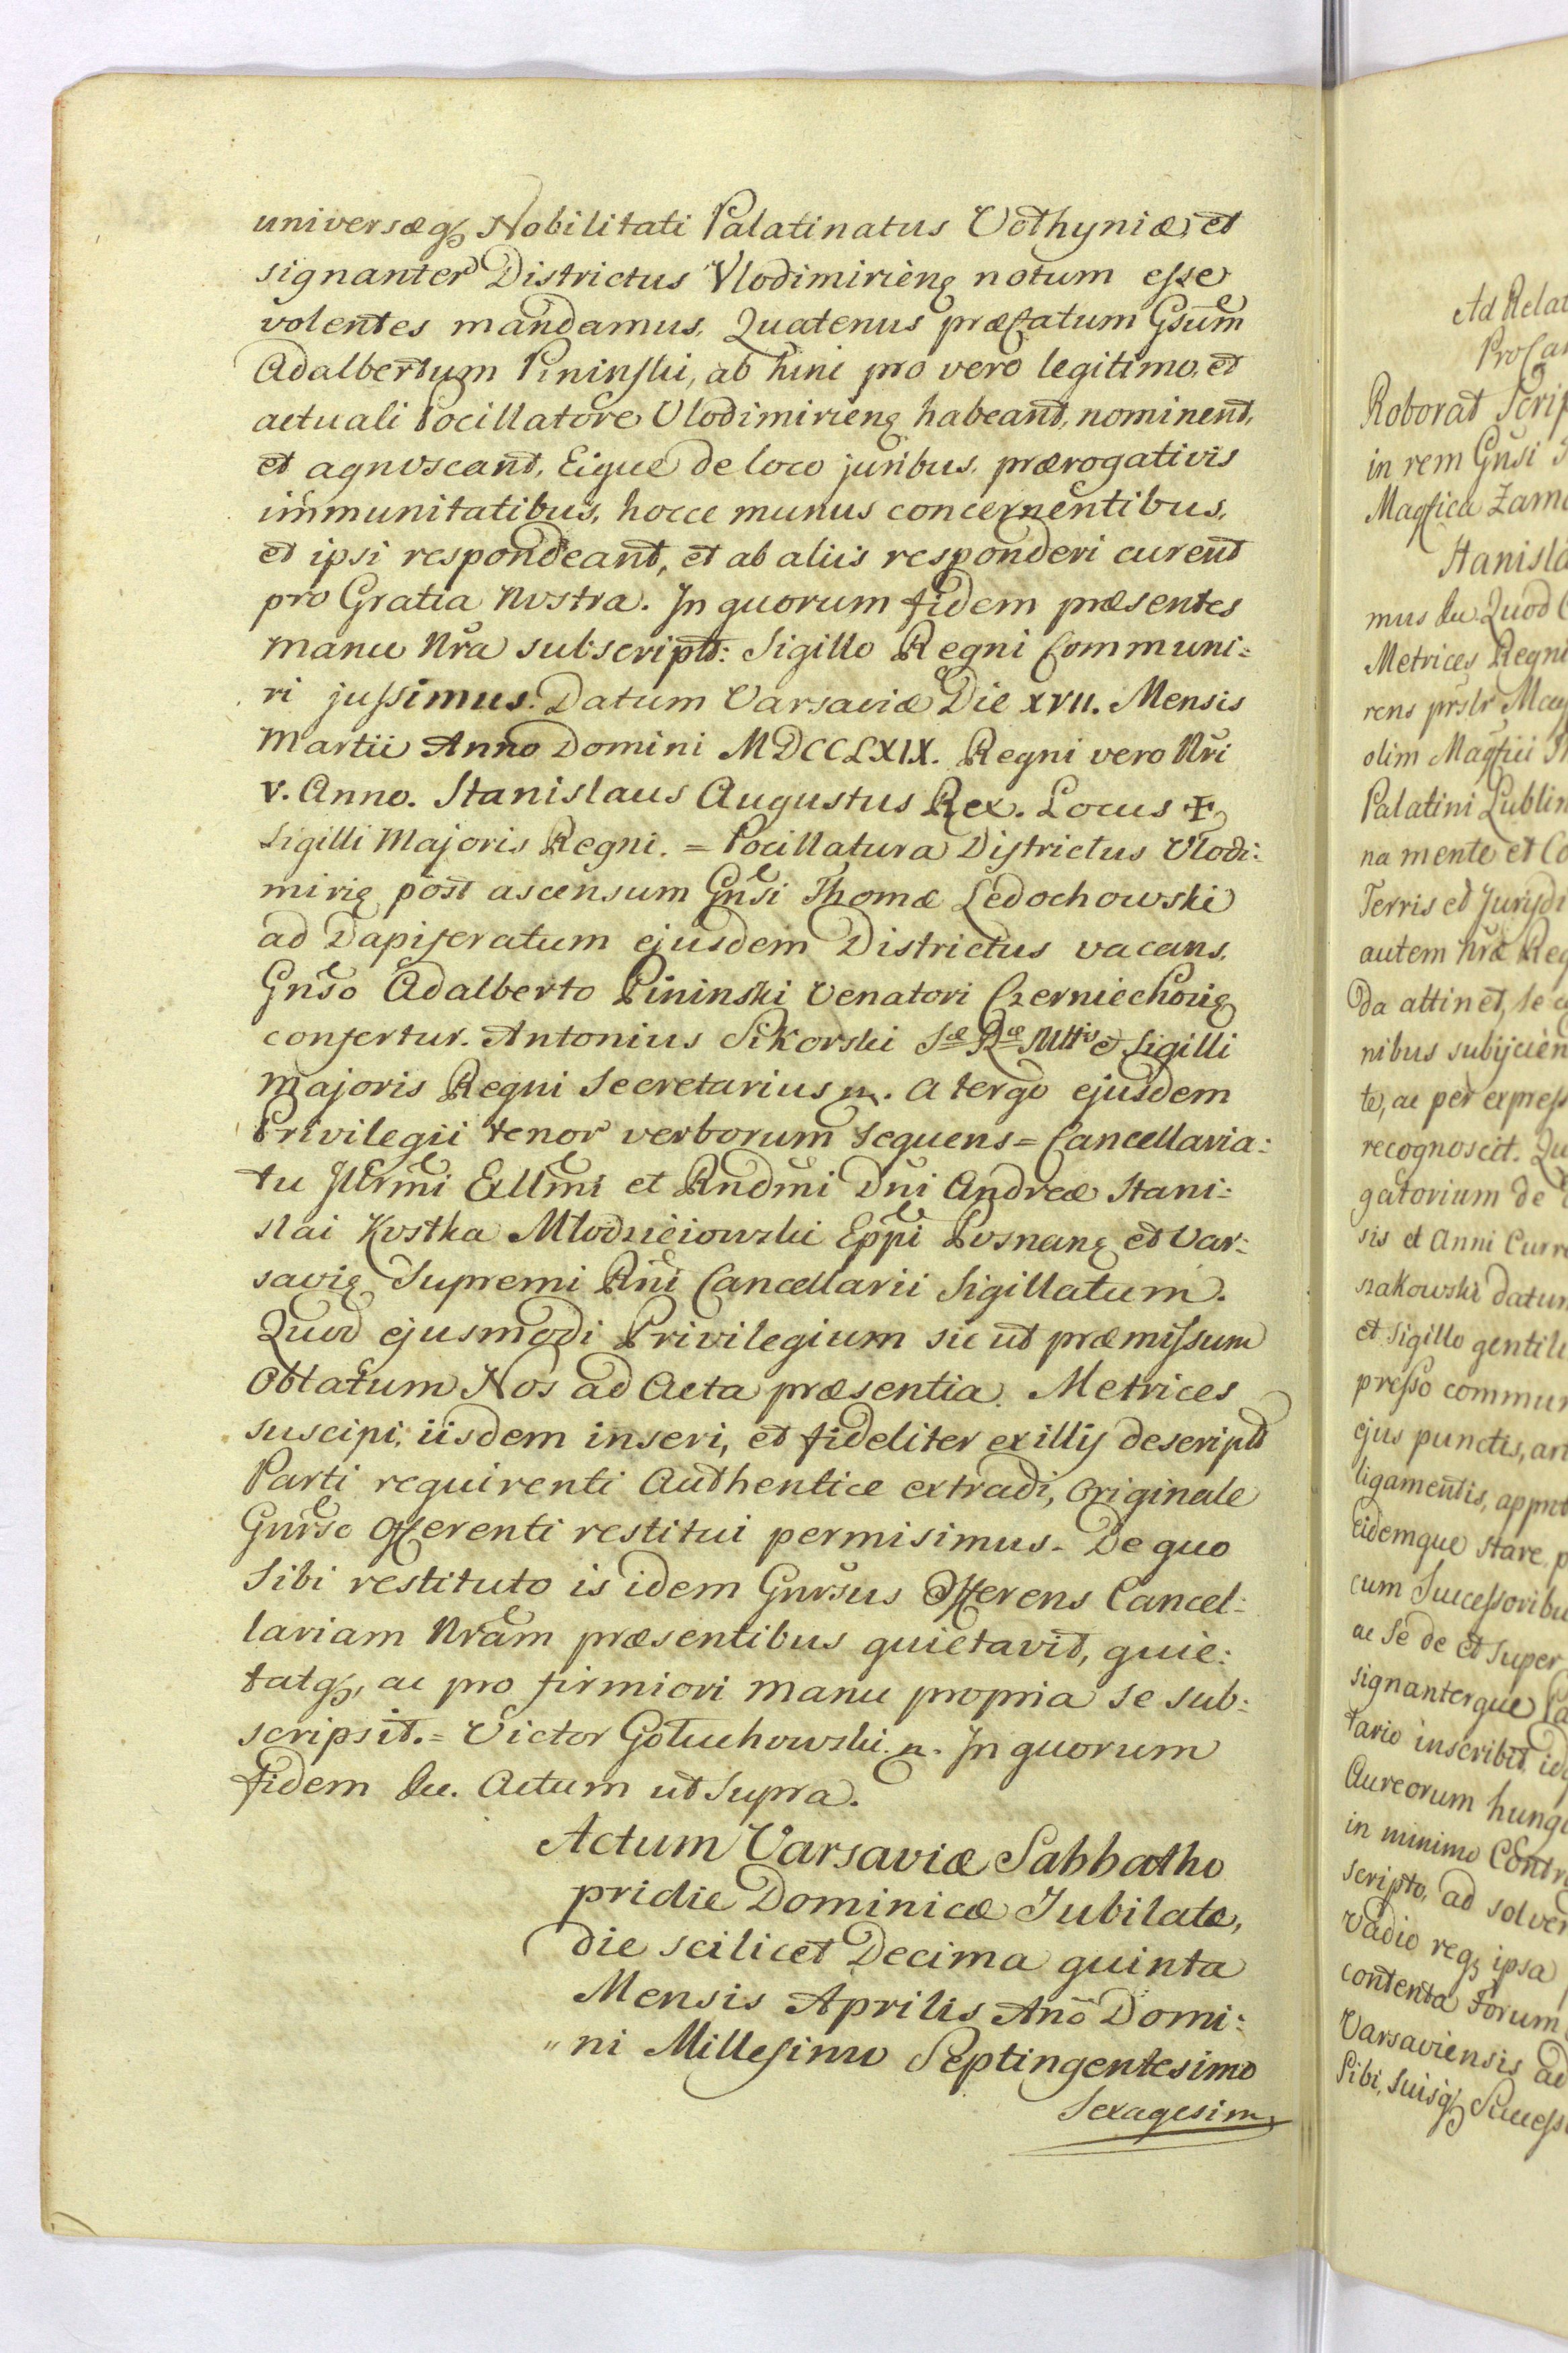 universæq₃ Nobilitati Palatinatus Volhyniæ, et
signanter Districtus Vlodimiriens notum esse
volentes mandamus, Quatenus præfatum Gsum
Adalbertum Pininski, ab hinc pro vero legitimo, et
actuali Pocillatore Vlodimiriens habeant, nominent,
et agnoscant, Eique de loco juribus, prærogativis
immunitatibus, hocce munus concernentibus,
et ipsi respondeant, et ab aliis responderi curent
pro Gratia Nostra. In quorum fidem præsentes
manu Nra subscript: Sigillo Regni Communi=
ri jussimus. Datum Varsaviæ Die XVII. Mensis
Martii Anno Domini MDCCLXIX. Regni vero Nri
V. Anno. Stanislaus Augustus Rex. Locus ✠
Sigilli Majoris Regni. = Pocillatura Districtus Vlodi=
mirię post ascensum Gnsi Thomæ Ledochowski
ad Dapiferatum ejusdem Districtus vacans,
Gnso Adalberto Pininski Venatori Czerniechovię
confertur. Antonius Sikorski Sæ Ræ Mttis et Sigilli
Majoris Regni Secretarius m. A tergo ejusdem
Privilegii tenor verborum sequens = Cancellaria=
tu Illrmi Exllmi et Rndmi Dni Andreæ Stani=
slai Kostka Młodzieiowski Eppi Posnanę et Var=
savię Supremi Rni Cancellarii Sigillatum.
Quod ejusmodi Privilegium sic ut præmissum
Oblatum Nos ad Acta præsentia Metrices
suscipi, iisdem inseri, et fideliter ex illis descript
Parti requirenti Authentice extradi, Originale
Gnrso Offerenti restitui permisimus. De quo
Sibi restituto is idem Gnrsus Offerens Cancel=
lariam Nram præsentibus quietavit, quie=
tatq₃, ac pro firmiori manu propria se sub=
scripsit. = Victor Gołuchowski m. In quorum
fidem &c. Actum ut Supra.
Actum Varsaviæ Sabbatho
pridie Dominicæ Jubilate,
die scilicet Decima quinta
Mensis Aprilis Ano Domi=
"ni Millesimo Septingentesimo
Sexagesim
Ad Relat
Roborat Scrip
in rem Gnsi
Magfica Zam
Stanisla
mus &c Quod
Metrices Regni
rens prslr
olim Magfici
Palatini Lublin
na mente et Co
Terris et Jurisdi
autem Nræ Reg
Da attinet, se
nibus subijcien
te, ac per express
recognoscit. Qu
gatorium de
sis et Anni Curr
szakowski datum
et Sigillo gentili
presso commun
ejus punctis, art
ligamentis,
eidemque stare, p
cum Successoribu
ac Se de et Super
signanterque
tario inscribit
Aureorum hung
in minimo Contr
scripto, ad solven
vadio req₃ ipsa
contenta Forum
Varsaviensis ad
Sibi, suisq₃ Success